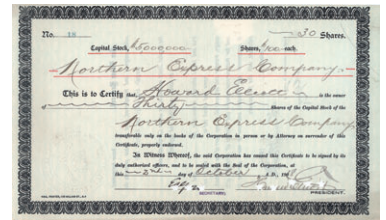 No. 30 Shares.
Capital Stock, $5000000 Shares, $100 each.
Northern Express Company
This is to Certify that Howard Elliott is the owner
of Thirty Shares of the Capital Stock of the
Northern Express Company
transferable only on the books of the Corporation in person or by Attorney on surrender of this
Certificate, properly endorsed.
In Witness Whereof, the said Corporation has caused this Certificate to be signed by its
duly authorized officers, and to be sealed with the Seal of the Corporation, at
this 2nd day of October A.D.
SECRETARY. PRESIDENT.